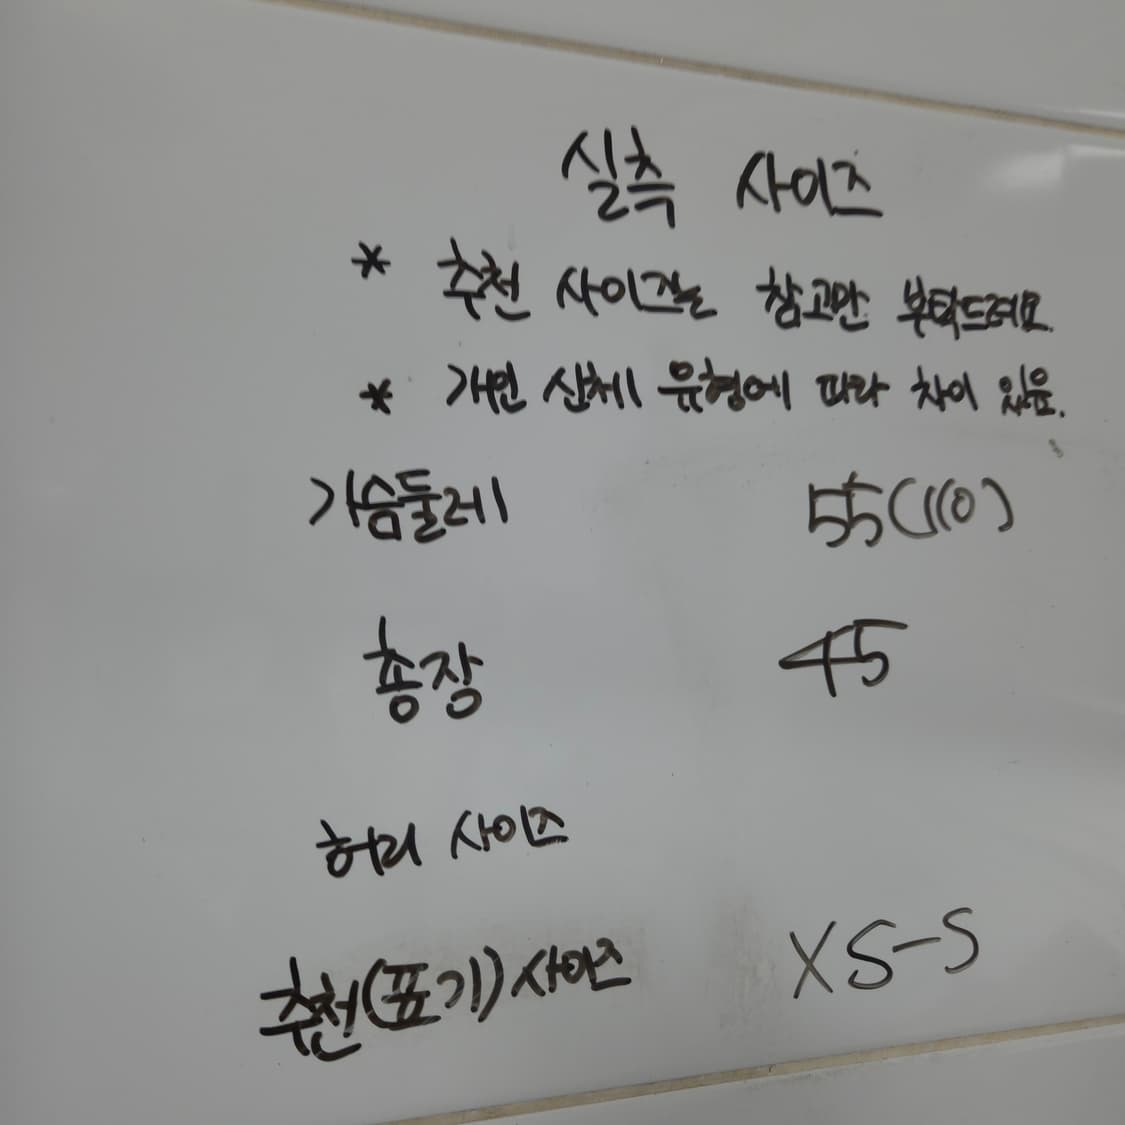 실측 사이즈
* 추천 사이즈는 참고만 부탁드려요.
* 개인 신체 유형에 따라 차이 있음.
가슴둘레 55(110)
총장 45
허리 사이즈
추천(표기)사이즈 XS-S